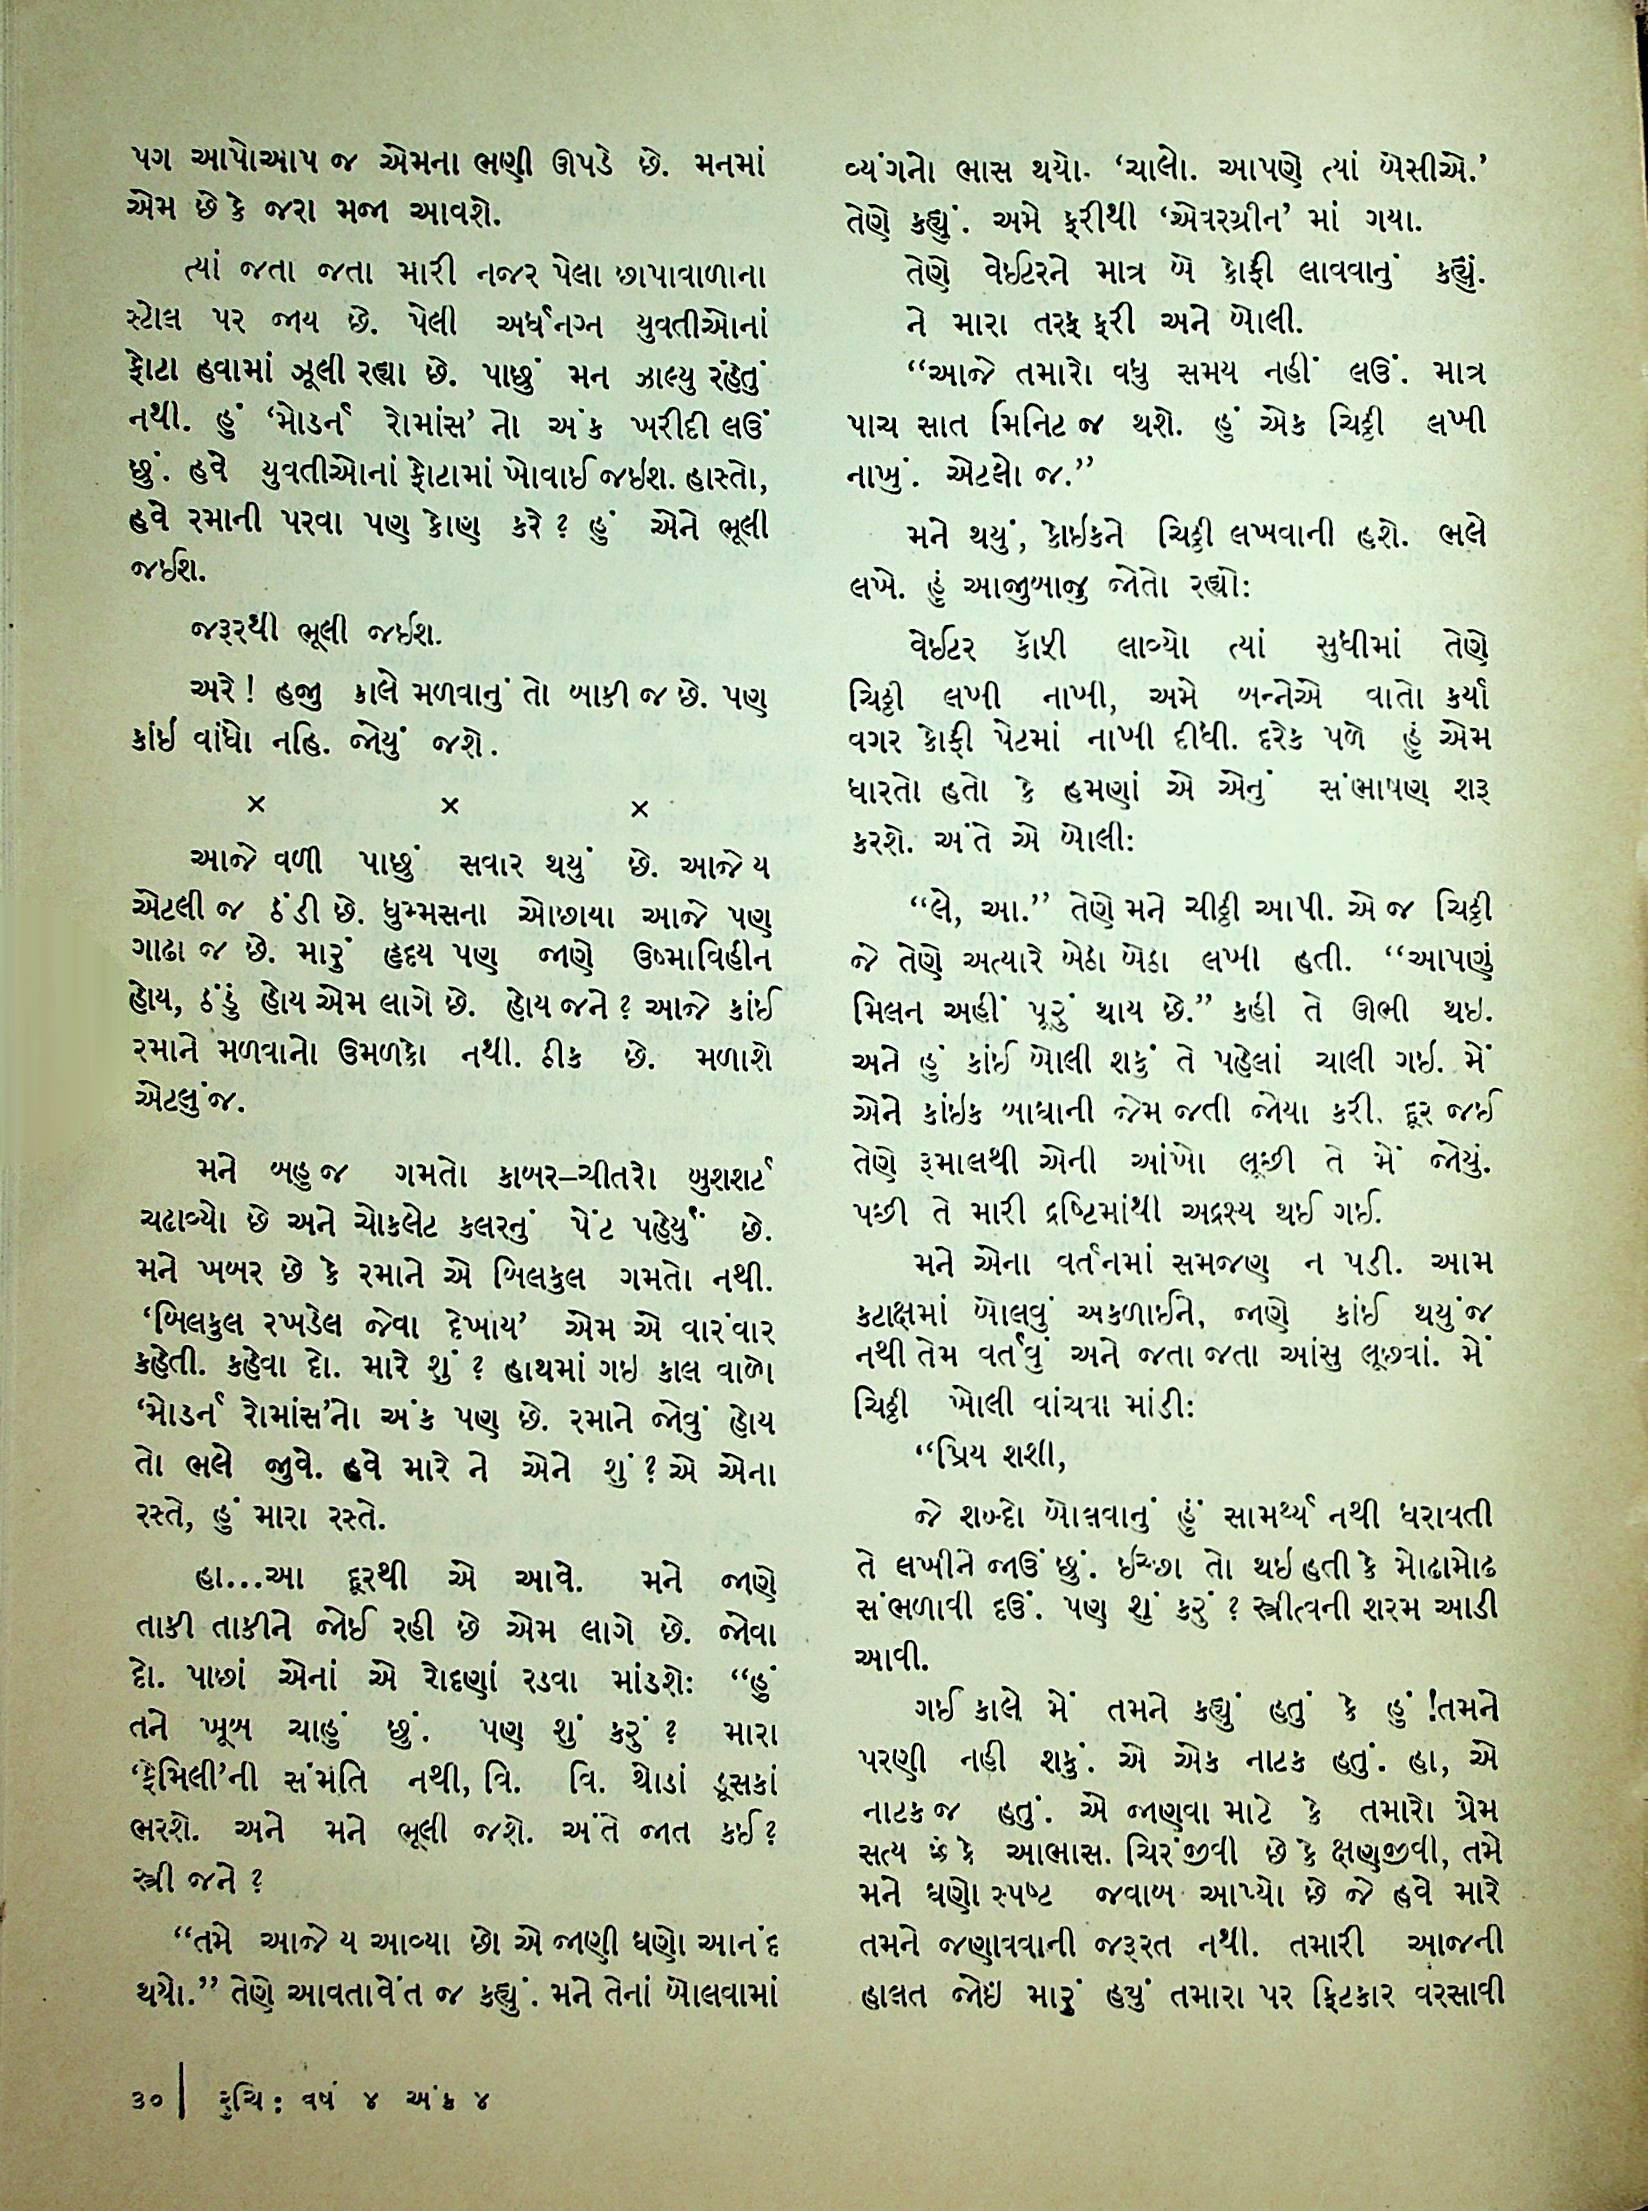 પગ આપોઆપ જ એમના ભણી ઊપડે છે. મનમાં
એમ છે કે જરા મજા આવશે.
ત્યાં જતા જતા મારી નજર પેલા છાપાવાળાના
સ્ટોલ પર જાય છે. પેલી અર્ધનગ્ન યુવતીઓનાં
ફોટા હવામાં ઝૂલી રહ્યા છે. પાછું મન ઝાલ્યુ રહેતું
નથી. હું ‘મોડર્ન રોમાંસ’ નો અંક ખરીદી લઉં
છું. હવે યુવતીઓનાં ફોટામાં ખોવાઈ જઇશ. હાસ્તો,
હવે રમાની પરવા પણ કોણ કરે ? હું એને ભૂલી
જઈશ.
જરૂરથી ભૂલી જઈશ.
અરે ! હજી કાલે મળવાનું તો બાકી જ છે. પણ
કાંઇ વાંધો નહિ. જોયું જશે.
× × ×
આજે વળી પાછું સવાર થયું છે. આજે ય
એટલી જ ઠંડી છે. ધુમ્મસના ઓછાયા આજે પણ
ગાઢા જ છે. મારું હૃદય પણ જાણે ઉષ્માવિહીન
હોય, ઠંડું હોય એમ લાગે છે. હોય જને ? આજે કાંઈ
રમાને મળવાનો ઉમળકો નથી. ઠીક છે. મળાશે
એટલુંજ.
મને બહુ જ ગમતો કાબર–ચીતરો બુશશર્ટ
ચઢાવ્યો છે અને ચોકલેટ કલરનું પેંટ પહેર્યું છે.
મને ખબર છે કે રમાને એ બિલકુલ ગમતો નથી.
‘બિલકુલ રખડેલ જેવા દેખાય’ એમ એ વારંવાર
કહેતી. કહેવા દો. મારે શું ? હાથમાં ગઇ કાલ વાળો
‘મોડર્ન રોમાંસ’નો અંક પણ છે. રમાને જોવું હોય
તો ભલે જુવે. હવે મારે ને એને શું ? એ એના
રસ્તે, હું મારા રસ્તે.
હા...આ દૂરથી એ આવે. મને જાણે
તાકી તાકીને જોઈ રહી છે એમ લાગે છે. જોવા
દો. પાછાં એનાં એ રોદણાં રડવા માંડશે: “હું
તને ખૂબ ચાહું છું. પણ શું કરું ? મારા
‘ફેમિલી’ની સંમતિ નથી, વિ. વિ. થોડાં ડૂસકાં
ભરશે. અને મને ભૂલી જશે. અંતે જાત કઈ ?
સ્ત્રી જને ?
“તમે આજે ય આવ્યા છો એ જાણી ઘણો આનંદ
થયો.” તેણે આવતાવેંત જ કહ્યું. મને તેનાં બોલવામાં
વ્યંગનો ભાસ થયો. ‘ચાલો. આપણે ત્યાં બેસીએ.’
તેણે કહ્યું. અમે ફરીથી ‘એવરગ્રીન’ માં ગયા.
તેણે વેઈટરને માત્ર બે કોફી લાવવાનું કહ્યું.
ને મારા તરફ ફરી અને બોલી.
“આજે તમારો વધુ સમય નહીં લઉં. માત્ર
પાચ સાત મિનિટ જ થશે. હું એક ચિઠ્ઠી લખી
નાખું. એટલો જ.”
મને થયું, કોઇકને ચિઠ્ઠી લખવાની હશે. ભલે
લખે. હું આજુબાજુ જોતો રહ્યો:
વેઈટર કૉફી લાવ્યો ત્યાં સુધીમાં તેણે
ચિઠ્ઠી લખી નાખી, અમે બન્નેએ વાતો કર્યા
વગર કોફી પેટમાં નાખી દીધી. દરેક પળે હું એમ
ધારતો હતો કે હમણાં એ એનું સંભાષણ શરૂ
કરશે. અંતે એ બોલી:
“લે, આ.” તેણે મને ચીઠ્ઠી આપી. એ જ ચિઠ્ઠી
જે તેણે અત્યારે બેઠા બેઠા લખી હતી. “આપણું
મિલન અહીં પૂરું થાય છે.” કહી તે ઊભી થઇ.
અને હું કાંઈ બોલી શકું તે પહેલાં ચાલી ગઇ. મેં
એને કાંઇક બાઘાની જેમ જતી જોયા કરી. દૂર જઈ
તેણે રૂમાલથી એની આંખો લૂછી તે મેં જોયું.
પછી તે મારી દ્રષ્ટિમાંથી અદ્રશ્ય થઈ ગઈ.
મને એના વર્તનમાં સમજણ ન પડી. આમ
કટાક્ષમાં બોલવું અકળાઈને, જાણે કાંઈ થયુંજ
નથી તેમ વર્તવું અને જતા જતા આંસુ લૂછવાં. મેં
ચિઠ્ઠી ખોલી વાંચવા માંડી:
“પ્રિય શશી,
જે શબ્દો બોલવાનું હું સામર્થ્ય નથી ધરાવતી
તે લખીને જાઉં છું. ઈચ્છા તો થઇ હતી કે મોઢામોઢ
સંભળાવી દઉં. પણ શું કરું ? સ્ત્રીત્વની શરમ આડી
આવી.
ગઈ કાલે મેં તમને કહ્યું હતું કે હું !તમને
પરણી નહી શકું. એ એક નાટક હતું. હા, એ
નાટક જ હતું. એ જાણવા માટે કે તમારો પ્રેમ
સત્ય છે કે આભાસ. ચિરંજીવી છે કે ક્ષણજીવી, તમે
મને ઘણો સ્પષ્ટ જવાબ આપ્યો છે જે હવે મારે
તમને જણાવવાની જરૂરત નથી. તમારી આજની
હાલત જોઇ મારું હયું તમારા પર ફિટકાર વરસાવી
૩૦ | રુચિ : વર્ષ ૪ અંક ૪